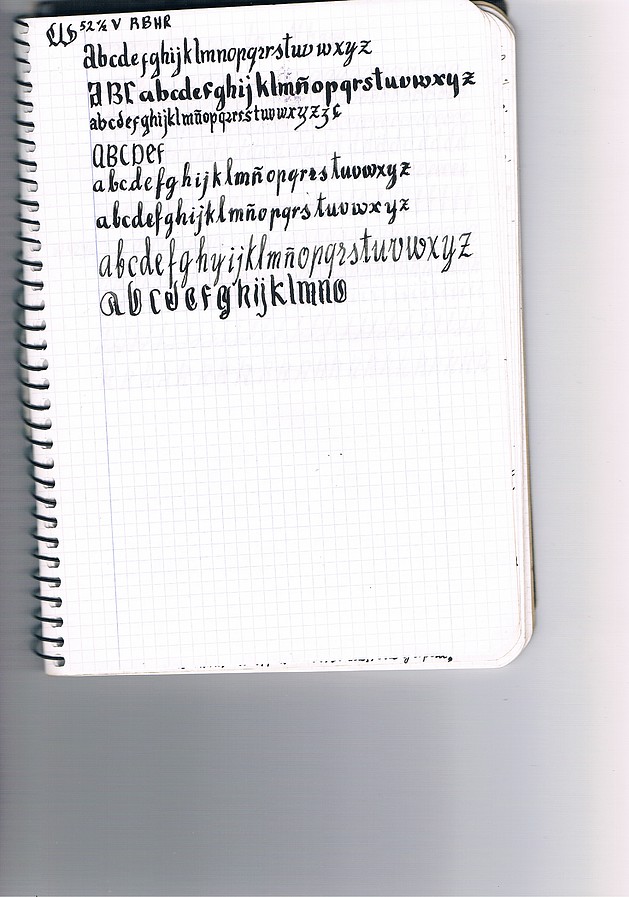 52½ V RBHR
abcdefghijklmnopqrsrstuvwxyz
ABC abcdefghijklmñopqrstuvwxyz
abcdefghijklmñopqrrsstuvwxyzzç
ABCDEF
abcdefghijklmñopqrrstuvwxyz
abcdefghijklmñopqrstuvwxyz
abcdefghyijklmñopqrstuvwxyz
abcdefghijklmno